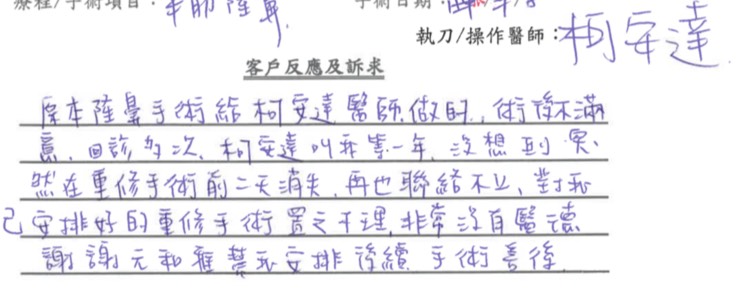 療程/手術項目：半肋隆鼻 手術日期：
執刀/操作醫師：柯安達
客戶反應及訴求
原本隆鼻手術給柯安達醫師做的，術後不滿
意，回診多次，柯安達叫我等一年，沒想到 突
然在重修手術前二天消失，再也聯絡不上，對我
已安排好的重修手術置之不理，非常沒有醫德
謝謝元和雅醫我安排後續 手術善後